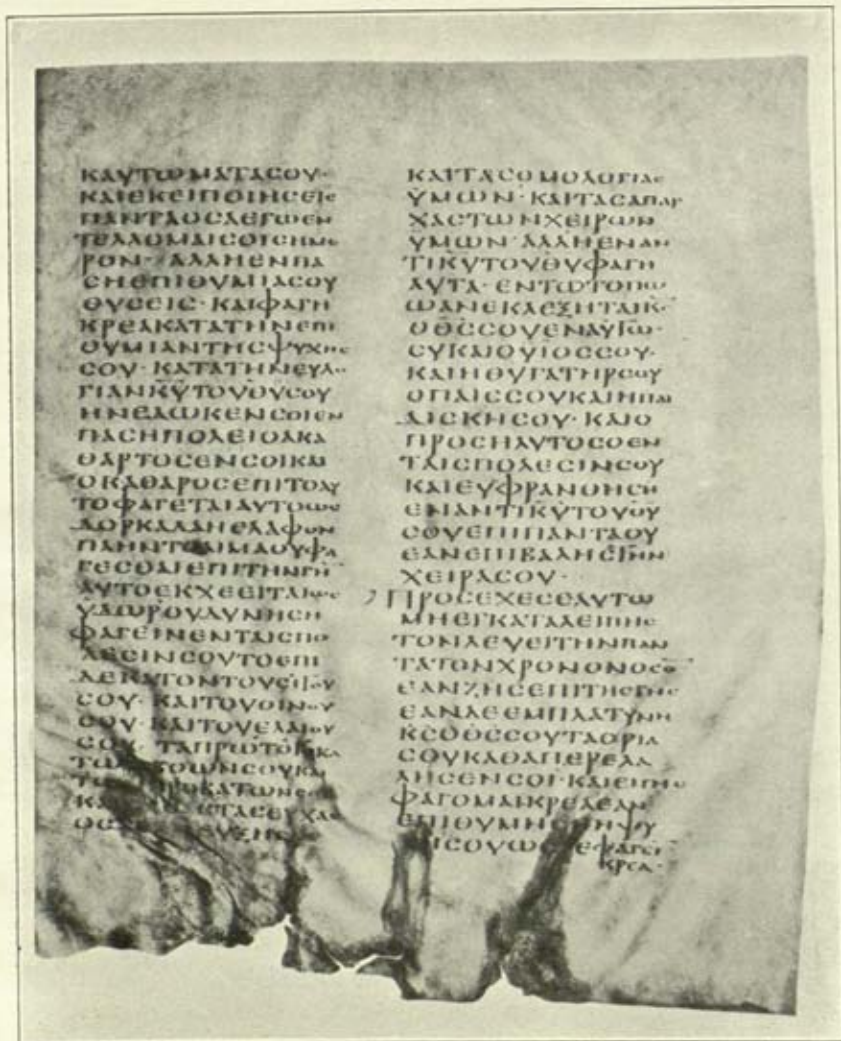 ΚΑΥΤΩΜΑΤΑCΟΥ·
ΚΑΙΕΚΕΙΠΟΙΗCΕΙC
ΠΑΝΤΑΟCΑΕΓΩΕΝ
ΤΕΛΛΟΜΑΙCΟΙCΗΜΕ
ΡΟΝ· ΑΛΛΗΕΝΠΑ
CΗΕΠΙΘΥΜΙΑCΟΥ
ΘΥCΕΙC·ΚΑΙΦΑΓΗ
ΚΡΕΑΚΑΤΑΤΗΝΕΠΙ
ΘΥΜΙΑΝΤΗCΨΥΧΗC
CΟΥ·ΚΑΤΑΤΗΝΕΥΛΟ
ΓΙΑΝΚ̅Υ̅ΤΟΥΘ̅Υ̅CΟΥ
ΗΝΕΔΩΚΕΝCΟΙΕΝ
ΠΑCΗΠΟΛΕΙΟΑΚΑ
ΘΑΡΤΟCΕΝCΟΙΚΑΙ
ΟΚΑΘΑΡΟCΕΠΙΤΟΑΥ
ΤΟΦΑΓΕΤΑΙΑΥΤΟΩC
ΔΟΡΚΑΔΑΗΕΛΑΦΟΝ
ΠΛΗΝΤΟΑΙΜΑΟΥΦΑ
ΓΕCΘΑΙΕΠΙΤΗΝΓΗ̅
ΑΥΤΟΕΚΧΕΕΙΤΑΙΩC
ΫΔΩΡΟΥΔΥΝΗCΗ
ΦΑΓΕΙΝΕΝΤΑΙCΠΟ
ΛΕCΙΝCΟΥΤΟΕΠΙ
ΔΕΚΑΤΟΝΤΟΥCΙΤΟΥ
CΟΥ·ΚΑΙΤΟΥΟΙΝΟΥ
CΟΥ·ΚΑΙΤΟΥΕΛΑΙΟΥ
CΟΥ·ΤΑΠΡΩΤΟΤΟΚΑ
ΤΩΝΒΟΩΝCΟΥΚΑΙ
ΚΑΙΤΑCΟΜΟΛΟΓΙΑC
ΫΜΩΝ·ΚΑΙΤΑCΑΠΑΡ
ΧΑCΤΩΝΧΕΙΡΩΝ
ΫΜΩΝ·ΑΛΛΗΕΝΑΝ
ΤΙΚ̅Υ̅ΤΟΥΘ̅Υ̅ΦΑΓΗ
ΑΥΤΑ·ΕΝΤΩΤΟΠΩ
ΩΑΝΕΚΛΕΞΗΤΑΙΚ̅C̅
ΟΘ̅C̅CΟΥΕΝΑΥΤΩ·
CΥΚΑΙΟΥΙΟCCΟΥ·
ΚΑΙΗΘΥΓΑΤΗΡCΟΥ
ΟΠΑΙCCΟΥΚΑΙΗΠΑΙ
ΔΙCΚΗCΟΥ·ΚΑΙΟ
ΠΡΟCΗΛΥΤΟCΟΕΝ
ΤΑΙCΠΟΛΕCΙΝCΟΥ
ΚΑΙΕΥΦΡΑΝΘΗCΗ
ΕΝΑΝΤΙΚ̅Υ̅ΤΟΥΘ̅Υ̅
CΟΥΕΠΙΠΑΝΤΑΟΥ
ΕΑΝΕΠΙΒΑΛΗCΤΗΝ
ΧΕΙΡΑCΟΥ·
ΠΡΟCΕΧΕCΕΑΥΤΩ
ΜΗΕΓΚΑΤΑΛΕΙΠΗC
ΤΟΝΛΕΥΕΙΤΗΝΠΑΝ
ΤΑΤΟΝΧΡΟΝΟΝΟCΟ̅
ΕΑΝΖΗCΕΠΙΤΗCΓΗC
ΕΑΝΔΕΕΜΠΛΑΤΥΝΗ
Κ̅C̅ΟΘ̅C̅CΟΥΤΑΟΡΙΑ
CΟΥΚΑΘΑΠΕΡΕΛΑ
ΛΗCΕΝCΟΙ·ΚΑΙΕΙΠΗC
ΦΑΓΟΜΑΙΚΡΕΑΕΑΝ
ΕΠΙΘΥΜΗCΗΗΨΥ
ΚΡΕΑ·